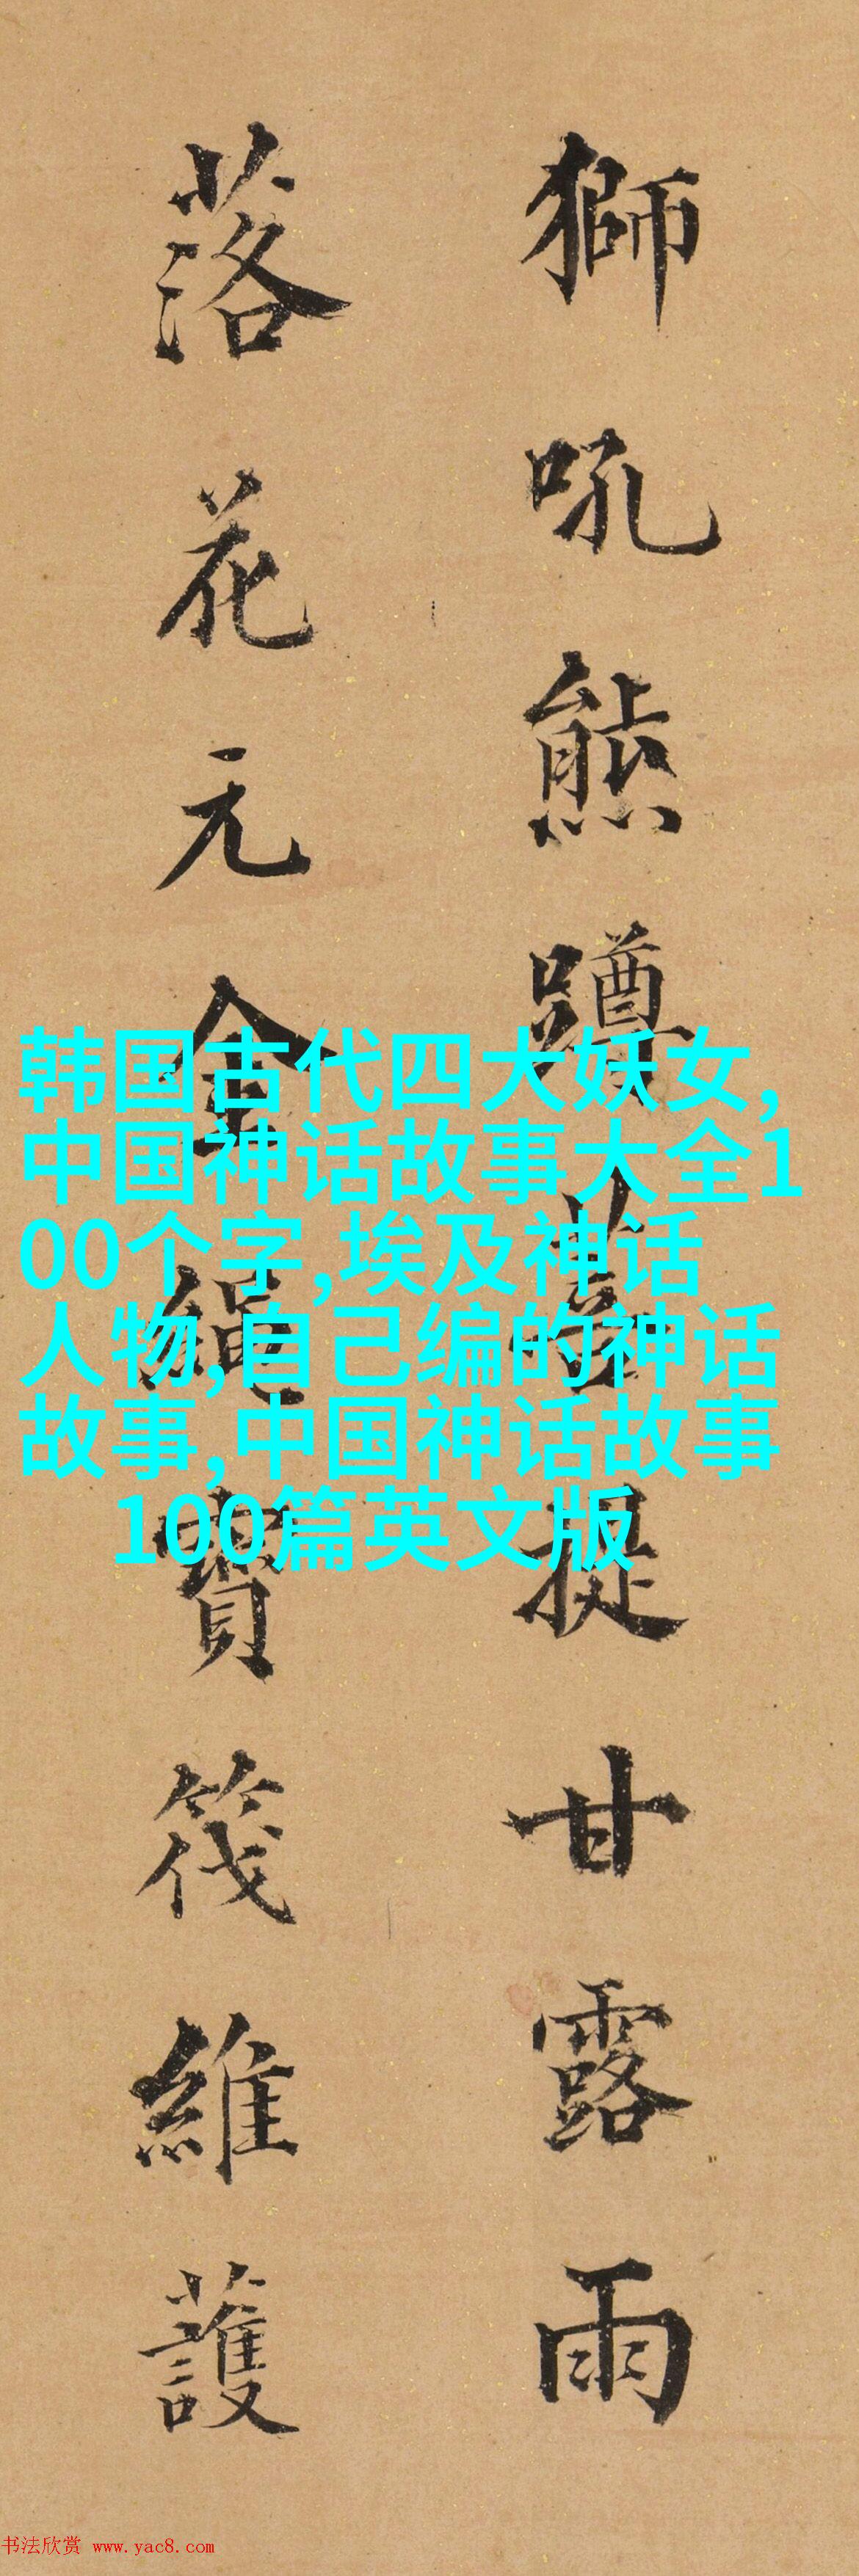 獅吼熊蹲菩提甘露雨
落花元金繩寶筏維護
韩国古代四大妖女,
中国神话故事大全1
00个字,埃及神话
人物,自己编的神话
故事,中国神话故事
100篇英文版
书法欣赏 www.yac8.com